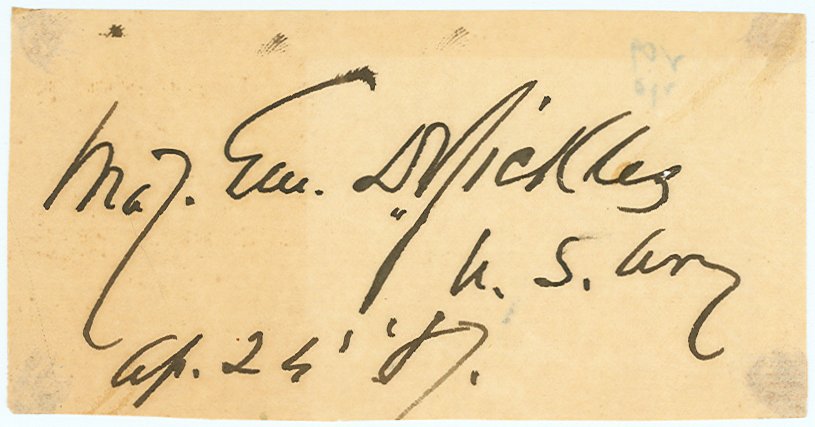 Maj. Gen. D Sickles
U. S. Army
Ap. 24' '87.